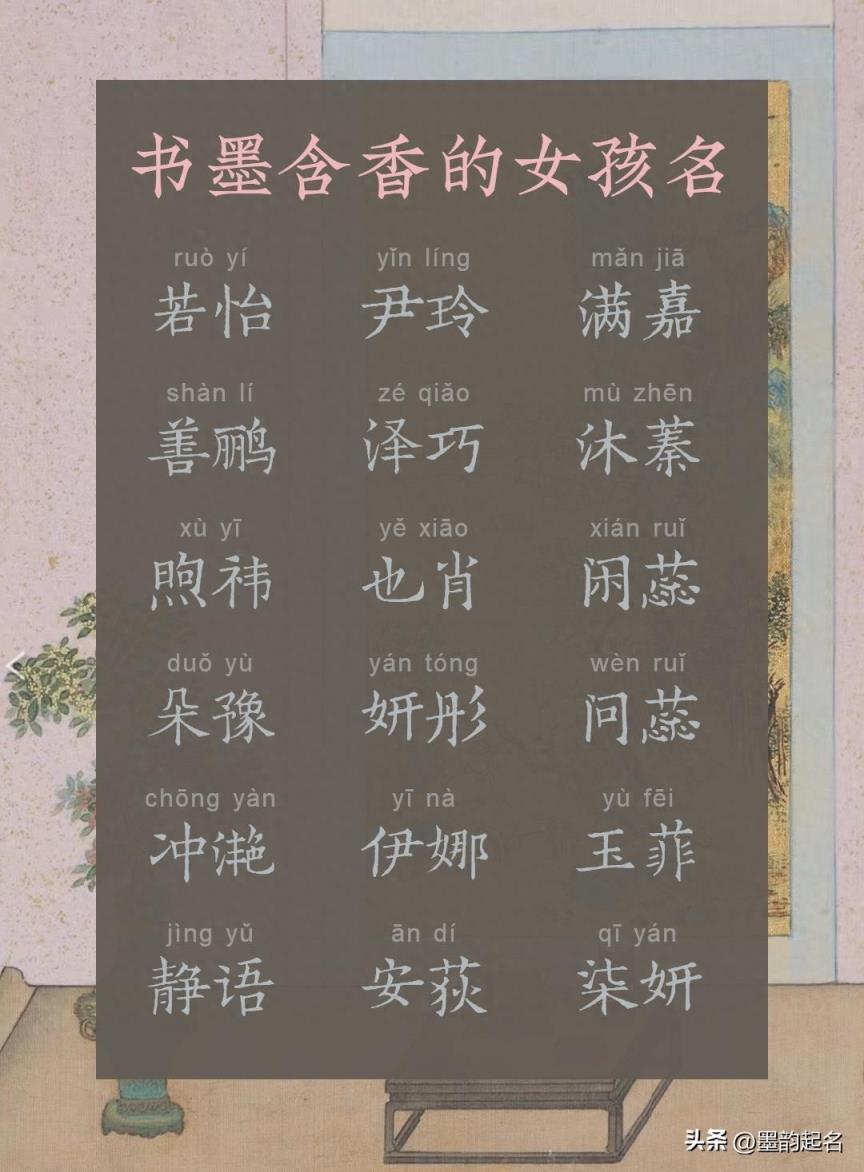 书墨含香的女孩名
ruò yí yǐn líng mǎn jiā
若怡 尹玲 满嘉
shàn lí zé qiǎo mù zhēn
善鹂 泽巧 沐蓁
xù yī yě xiāo xián ruǐ
煦祎 也肖 闲蕊
duǒ yù yán tóng wèn ruǐ
朵豫 妍彤 问蕊
chōng yàn yī nà yù fēi
冲滟 伊娜 玉菲
jìng yǔ ān dí qī yán
静语 安荻 柒妍
头条 @墨韵起名